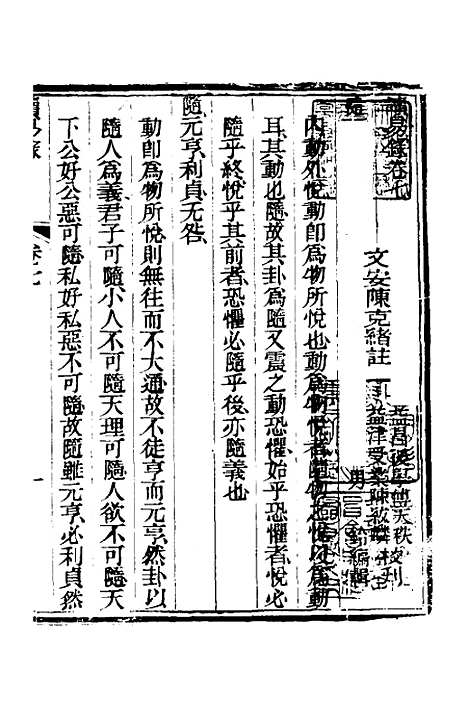 讀易錄卷七
文安陳克緒註
益昌後學
天秩校刋
益津受業陳
男
編輯
隨
內動外悅動卽爲物所悅也動爲物悅者隨物
悅以爲動
耳其動也隨故其卦爲隨又震之動恐懼始乎恐懼者悅必
隨乎終悅乎其前者恐懼必隨乎後亦隨義也
隨元亨利貞无咎
動卽爲物所悅則無往而不大通故不徒亨而元亨然卦以
隨人爲義君子可隨小人不可隨天理可隨人欲不可隨天
下公好公惡可隨私好私惡不可隨故隨雖元亨必利貞然
讀易錄
卷七
一